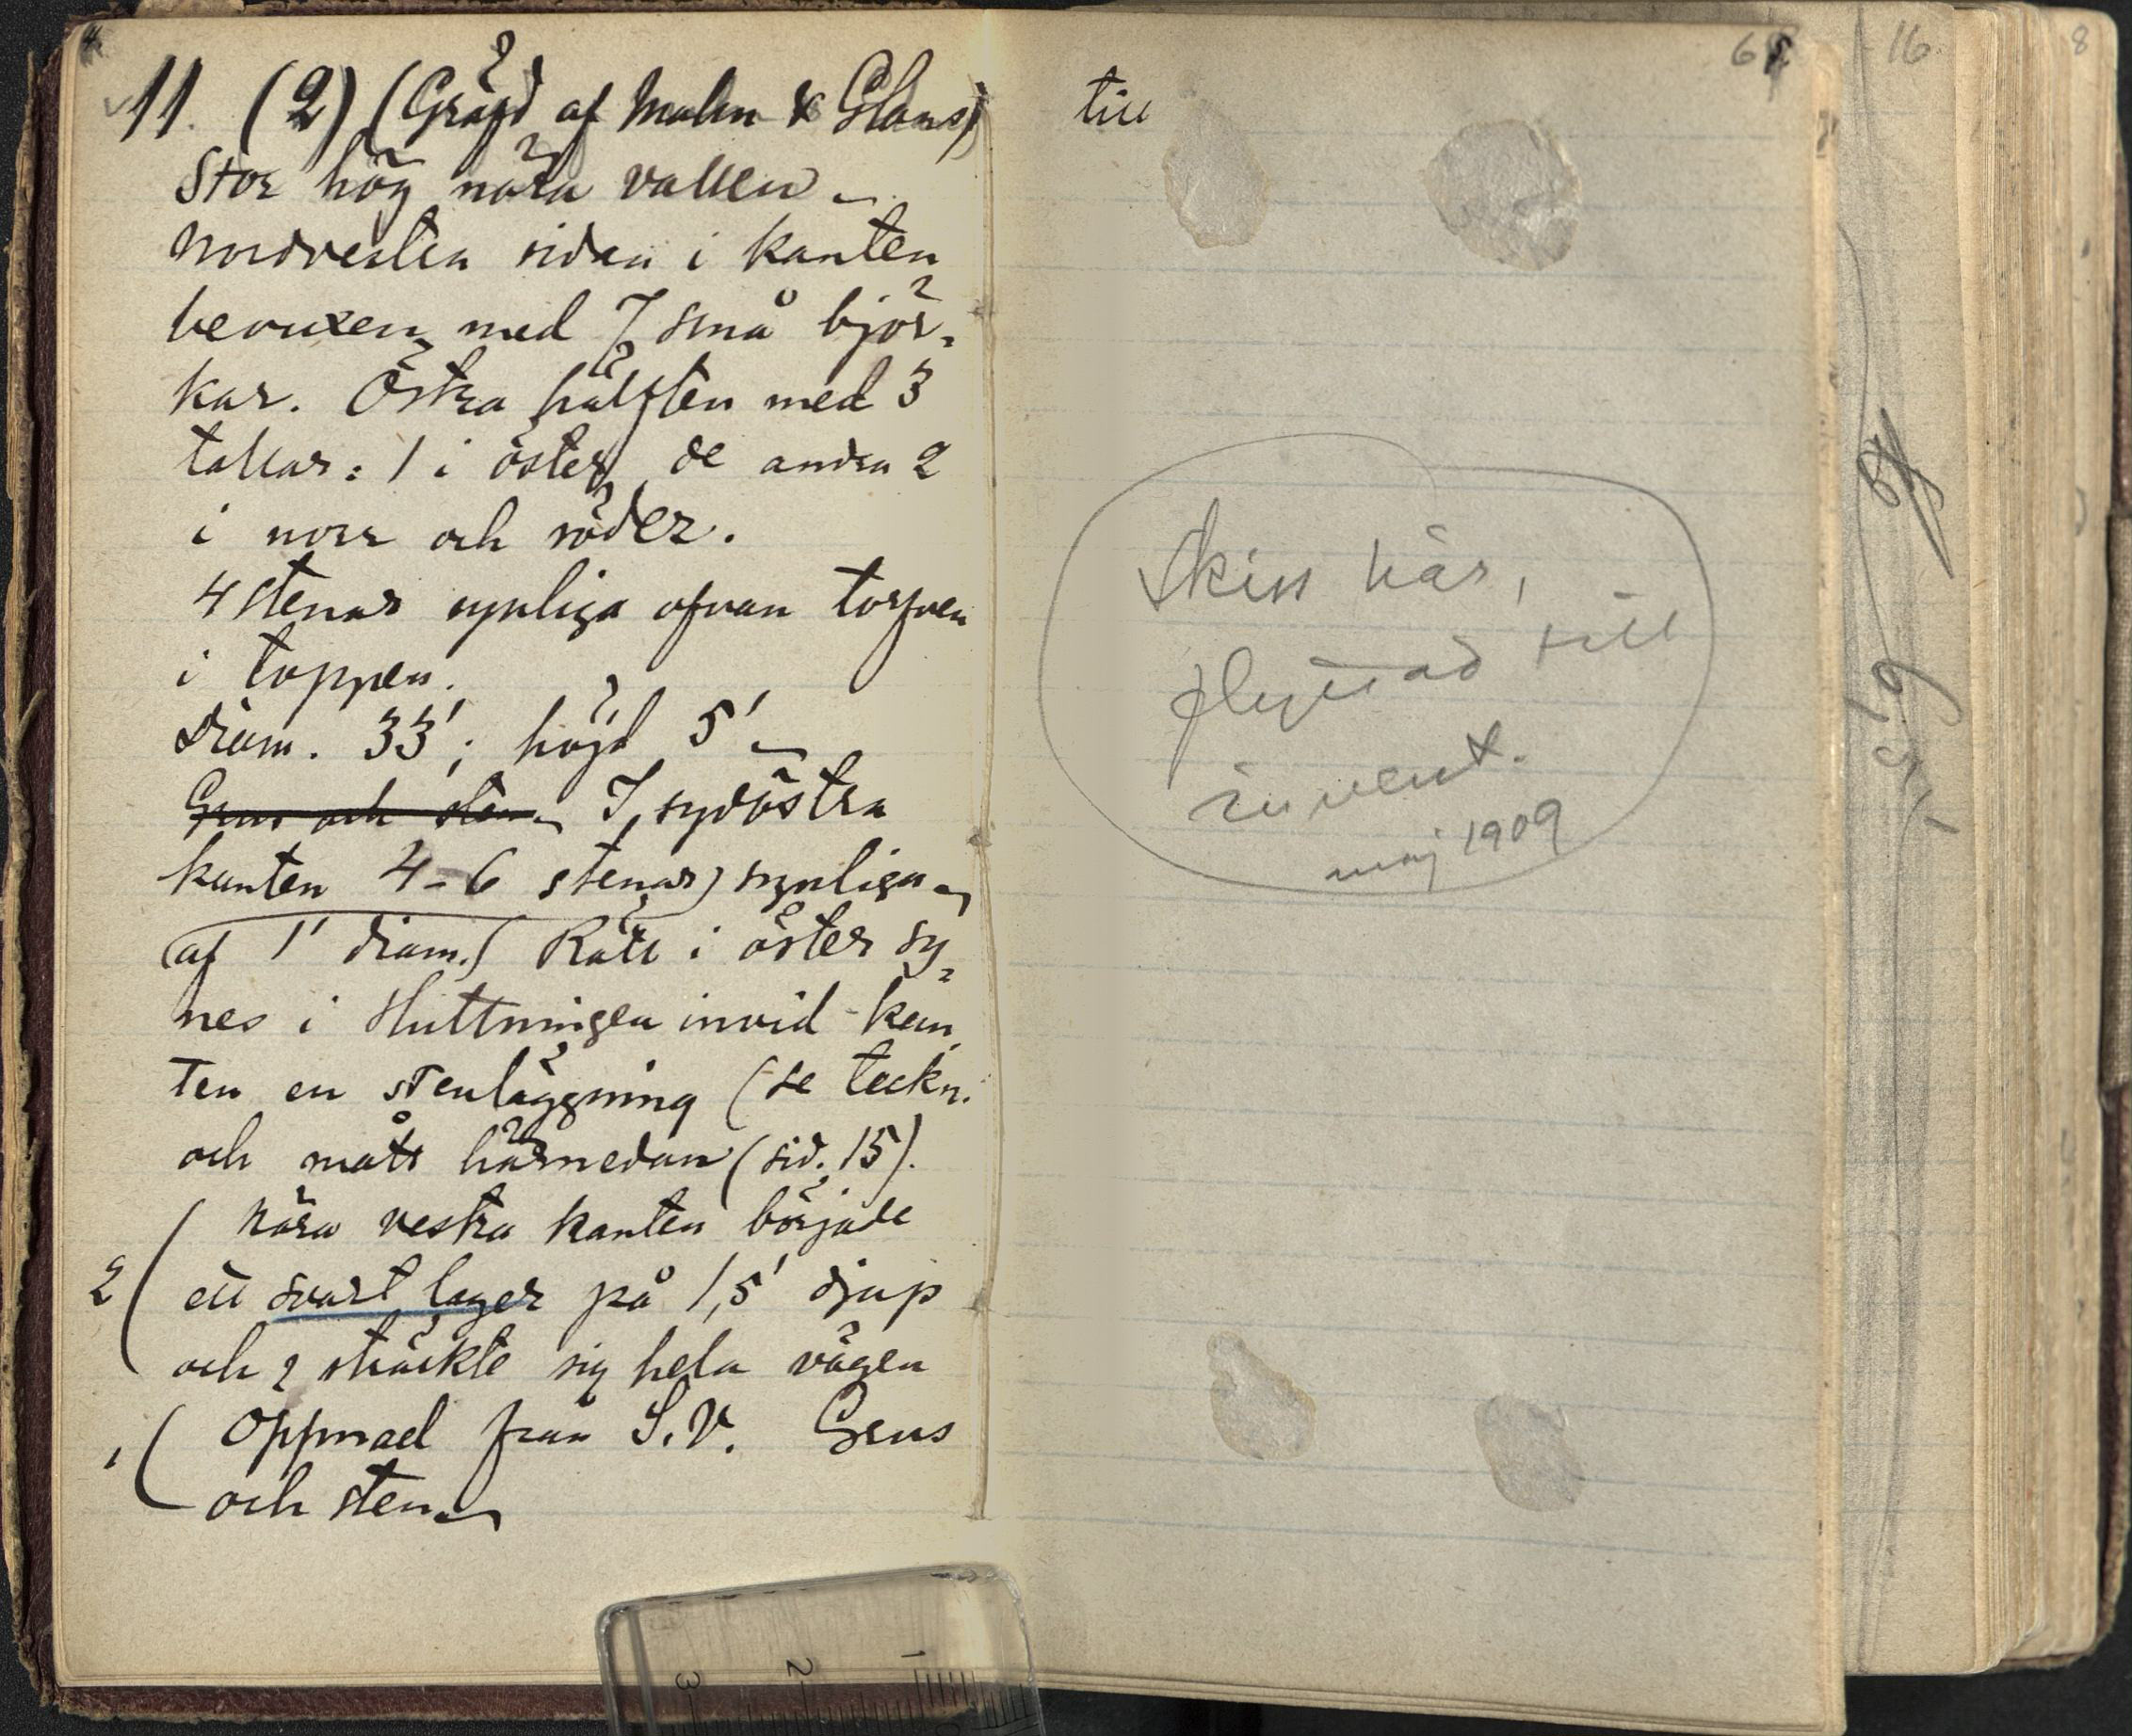 4
11. (2) (Gräfd af Malm & Glans)
Stor hög nära vallen
nordvestra sidan i kanten
bevuxen med 7 små björ-
kar. Östra hälften med 3
tallar: 1 i öster, de andra 2
i norr och söder.
4 stenar synliga ofvan torfven
i toppen.
Diam. 33'; höjd 5'
Grus och sten I sydöstra
kanten 4-6 stenar) synliga
(af 1' diam.) Rätt i öster sy-
nes i sluttningen invid kan-
ten en stenläggning (se teckn.
och mått härnedan (sid. 15).
Nära vestra kanten började
2 ett svart lager på 1,5' djup
och sträckte sig hela vägen
1 Öppnad från S.V. Grus
och sten
till
6
Skiss här,
flyttad till
invent.
maj 1909
16
8
3
2
1